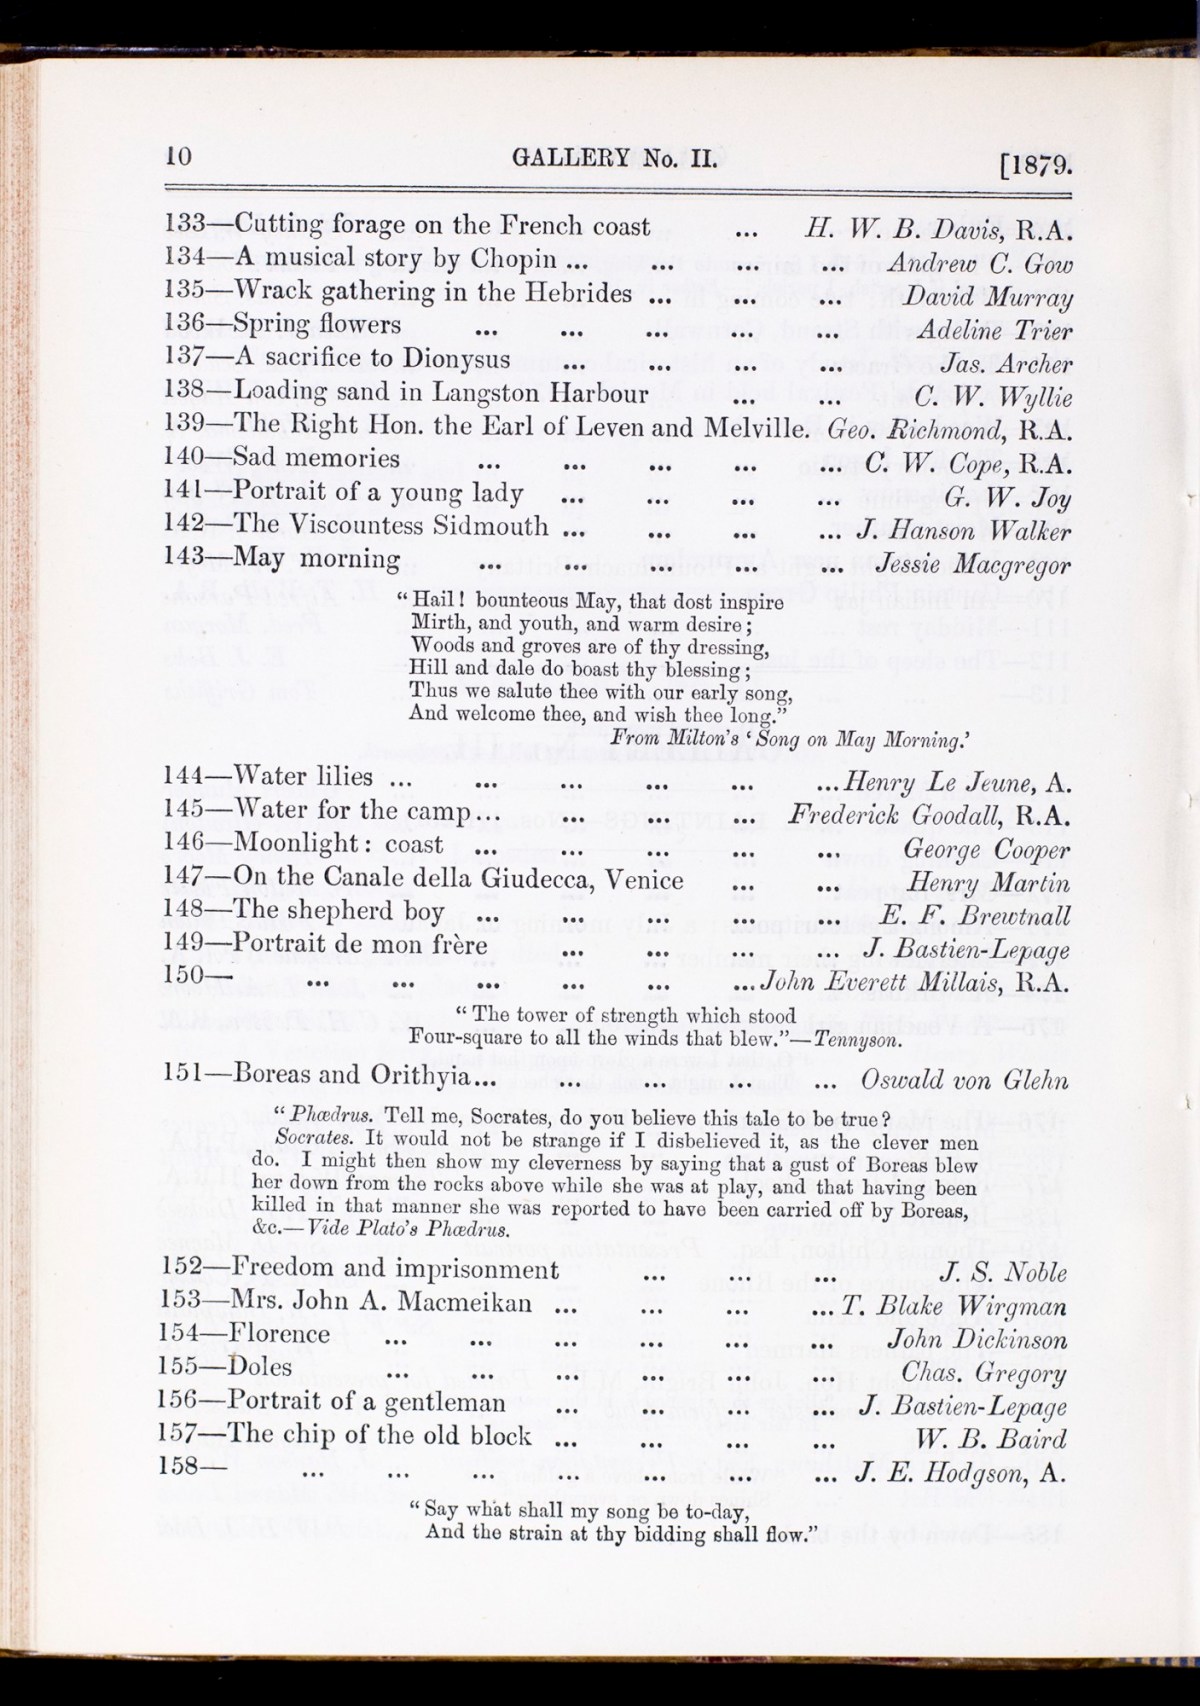 10 GALLERY No. II. [1879.
133—Cutting forage on the French coast ... H. W. B. Davis, R.A.
134—A musical story by Chopin ... ... ... ... Andrew C. Gow
135—Wrack gathering in the Hebrides ... ... ... David Murray
136—Spring flowers ... ... ... ... ... Adeline Trier
137—A sacrifice to Dionysus ... ... ... ... Jas. Archer
138—Loading sand in Langston Harbour ... ... C. W. Wyllie
139—The Right Hon. the Earl of Leven and Melville. Geo. Richmond, R.A.
140—Sad memories ... ... ... ... ... C. W. Cope, R.A.
141—Portrait of a young lady ... ... ... ... G. W. Joy
142—The Viscountess Sidmouth ... ... ... ... J. Hanson Walker
143—May morning ... ... ... ... ... Jessie Macgregor
“Hail! bounteous May, that dost inspire
Mirth, and youth, and warm desire;
Woods and groves are of thy dressing,
Hill and dale do boast thy blessing;
Thus we salute thee with our early song,
And welcome thee, and wish thee long.”
From Milton's ‘Song on May Morning.’
144—Water lilies ... ... ... ... ... ...Henry Le Jeune, A.
145—Water for the camp... ... ... ... Frederick Goodall, R.A.
146—Moonlight: coast ... ... ... ... ... George Cooper
147—On the Canale della Giudecca, Venice ... ... Henry Martin
148—The shepherd boy ... ... ... ... ... E. F. Brewtnall
149—Portrait de mon frère ... ... ... ... J. Bastien-Lepage
150— ... ... ... ... ... ...John Everett Millais, R.A.
“The tower of strength which stood
Four-square to all the winds that blew.”—Tennyson.
151—Boreas and Orithyia... ... ... ... ... Oswald von Glehn
“Phœdrus. Tell me, Socrates, do you believe this tale to be true?
Socrates. It would not be strange if I disbelieved it, as the clever men
do. I might then show my cleverness by saying that a gust of Boreas blew
her down from the rocks above while she was at play, and that having been
killed in that manner she was reported to have been carried off by Boreas,
&c.—Vide Plato's Phœdrus.
152—Freedom and imprisonment ... ... ... J. S. Noble
153—Mrs. John A. Macmeikan ... ... ... ...T. Blake Wirgman
154—Florence ... ... ... ... ... ... John Dickinson
155—Doles ... ... ... ... ... ... Chas. Gregory
156—Portrait of a gentleman ... ... ... ... J. Bastien-Lepage
157—The chip of the old block ... ... ... ... W. B. Baird
158— ... ... ... ... ... ... ... J. E. Hodgson, A.
“Say what shall my song be to-day,
And the strain at thy bidding shall flow.”